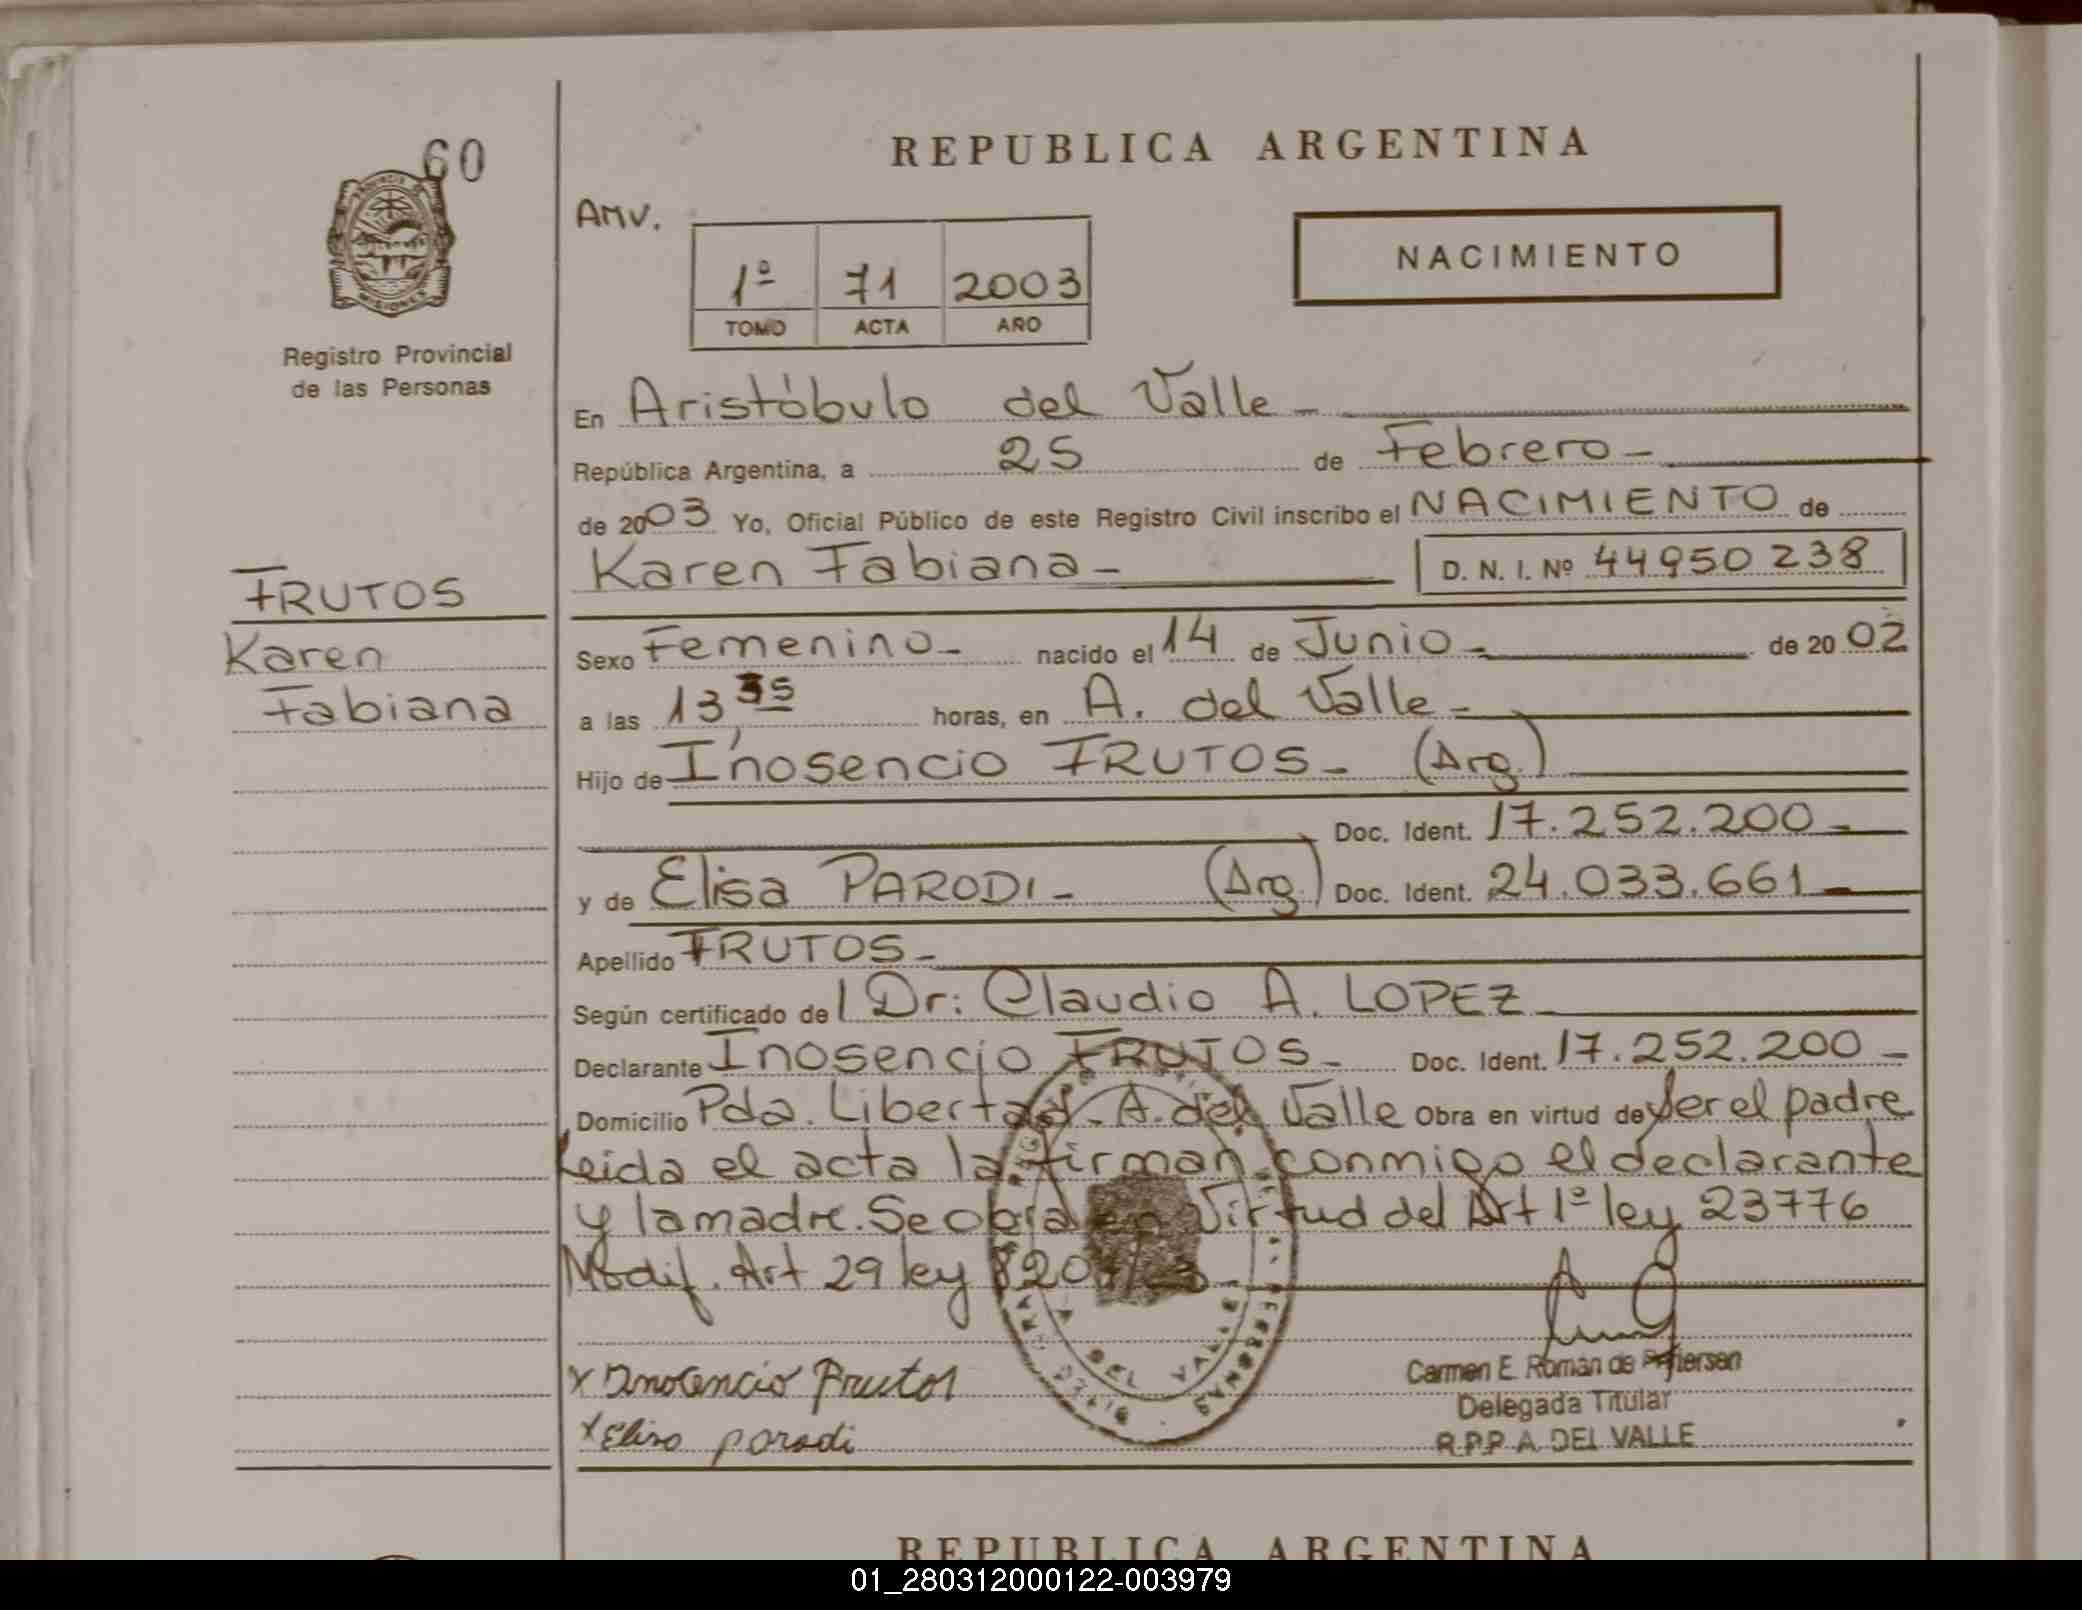 60
REPUBLICA ARGENTINA
AMV.
1º 71 2003
TOMO ACTA AÑO
NACIMIENTO
PROVINCIA DE
MISIONES
Registro Provincial
de las Personas
En Aristóbulo del Valle -
República Argentina, a 25 de Febrero -
de 2003 Yo, Oficial Público de este Registro Civil inscribo el NACIMIENTO de
Karen Fabiana - D. N. I. Nº 44950238
FRUTOS
Karen
Fabiana
Sexo Femenino - nacido el 14 de Junio - de 20 02
a las 13,35 horas, en A. del Valle -
Hijo de Inosencio FRUTOS - (Arg.)
Doc. Ident. 17.252.200 -
y de Elisa PARODI - (Arg.) Doc. Ident. 24.033.661 -
Apellido FRUTOS -
Según certificado de l Dr: Claudio A. LOPEZ
Declarante Inosencio FRUTOS - Doc. Ident. 17.252.200 -
Domicilio Pda. Libertad - A. del Valle Obra en virtud de ser el padre
Leida el acta la firman conmigo el declarante
y la madre. Se obra en Virtud del Art 1º ley 23776
Modif. Art 29 ley
x Inocencio Frutos
x Elisa parodi
Carmen E. Román de
Delegada Titular
R.P.P A. DEL VALLE
DEL VALLE
PERSONAS
REPUBLICA ARGENTINA
01_280312000122-003979